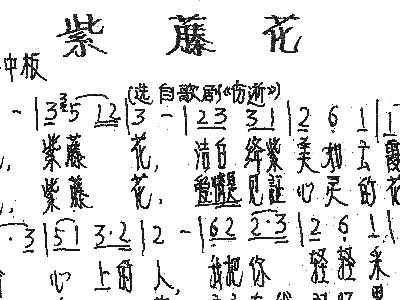 紫藤花
中板
(选自歌剧《伤逝》)
- | 3 3 5 1 2 | 3 - | 2 3 3 1 | 2 6 1 | 1
紫藤 花, 洁白 绛紫 美如云霞
紫藤 花, 爱情 见证 心灵的花
· 3 | 5 1 3 · 2 | 2 - | 6 2 2 · 3 | 2 6 1 |
心 上的 人, 我把 你 轻轻 采